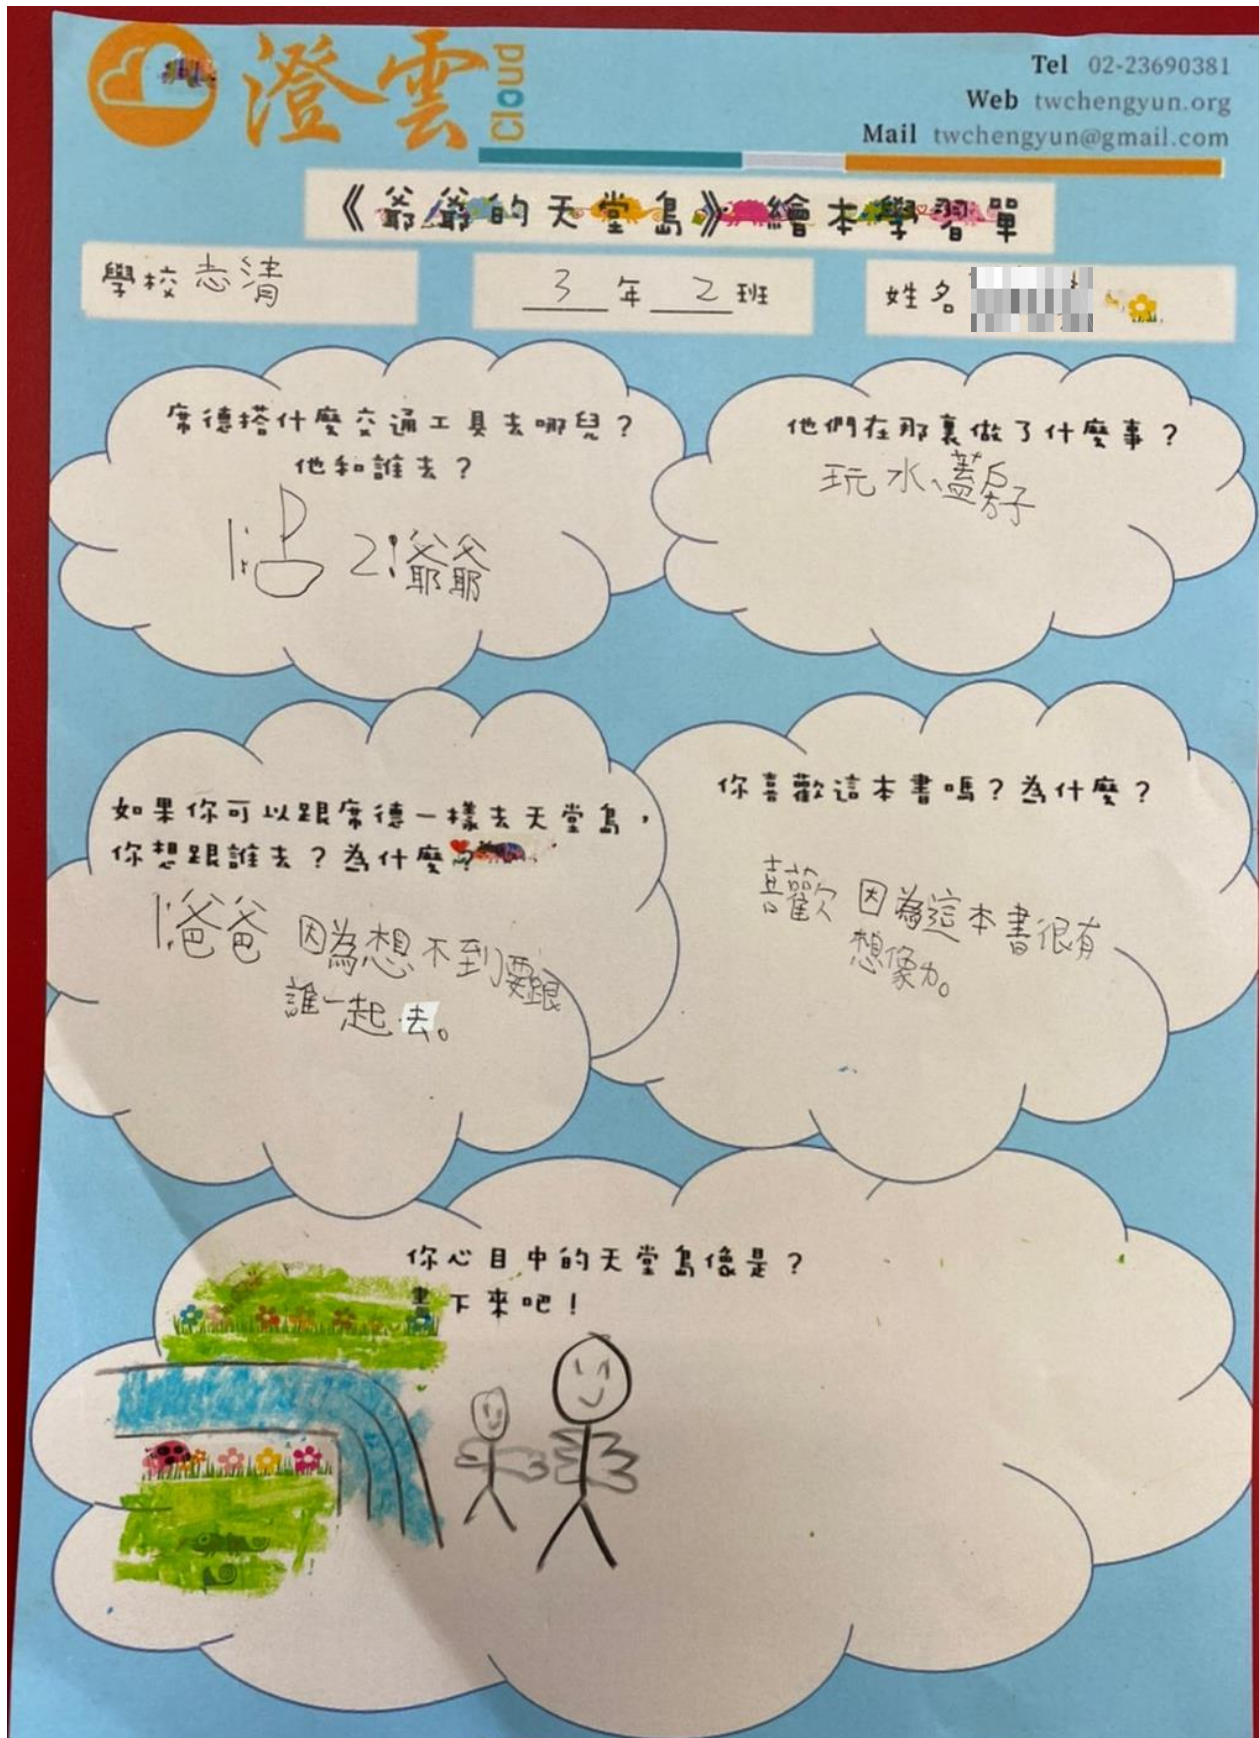 澄雲
Cloud
Tel 02-23690381
Web twchengyun.org
Mail twchengyun@gmail.com
《爺爺的天堂島》繪本學習單
學校 志清
3 年 2 班
姓名
席德搭什麼交通工具去哪兒？
他和誰去？
1: 2: 爺爺
他們在那裏做了什麼事？
玩水、蓋房子
如果你可以跟席德一樣去天堂島，
你想跟誰去？為什麼？
1: 爸爸 因為想不到要跟
誰一起去。
你喜歡這本書嗎？為什麼？
喜歡 因為這本書很有
想像力。
你心目中的天堂島像是？
畫下來吧！